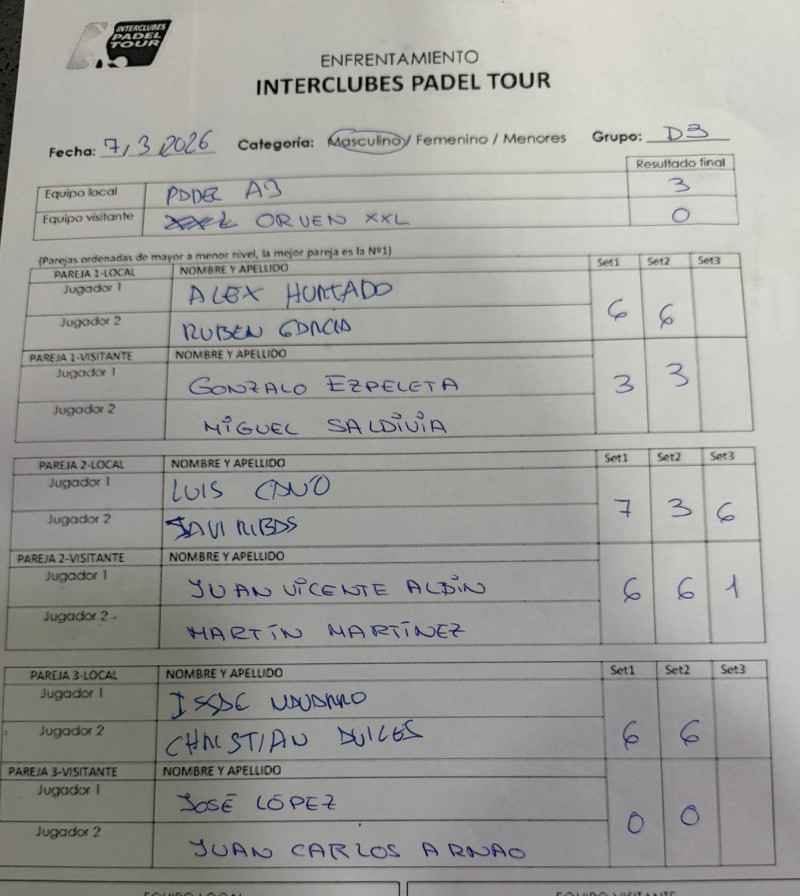 INTERCLUBES
PADEL
TOUR
ENFRENTAMIENTO
INTERCLUBES PADEL TOUR
Fecha: 7/3/2026 Categoría: Masculino / Femenino / Menores Grupo: D3
Resultado final
Equipo local PADEL A3 3
Equipo visitante ORVEN XXL 0
(Parejas ordenadas de mayor a menor nivel, la mejor pareja es la Nº1)
PAREJA 1-LOCAL NOMBRE Y APELLIDO Set1 Set2 Set3
Jugador 1 ALEX HURTADO
Jugador 2 RUBEN GARCIA
6 6
PAREJA 1-VISITANTE NOMBRE Y APELLIDO
Jugador 1 GONZALO EZPELETA
Jugador 2 MIGUEL SALDIVIA
3 3
PAREJA 2-LOCAL NOMBRE Y APELLIDO Set1 Set2 Set3
Jugador 1 LUIS CANO
Jugador 2 JAVI RIBAS
7 3 6
PAREJA 2-VISITANTE NOMBRE Y APELLIDO
Jugador 1 JUAN VICENTE ALBIN
Jugador 2 MARTÍN MARTÍNEZ
6 6 1
PAREJA 3-LOCAL NOMBRE Y APELLIDO Set1 Set2 Set3
Jugador 1 NAVARRO
Jugador 2 CHRISTIAN
6 6
PAREJA 3-VISITANTE NOMBRE Y APELLIDO
Jugador 1 JOSÉ LÓPEZ
Jugador 2 JUAN CARLOS ARNAO
0 0
EQUIPO LOCAL EQUIPO VISITANTE